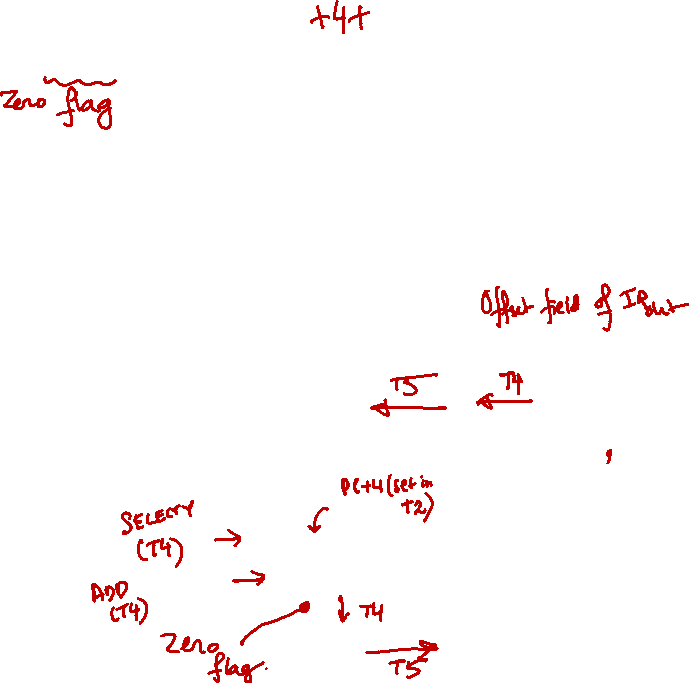 +4+
Zero flag
Offset field of IRout
T5
T4
PC+4 (set in
T2)
SELECTY
(T4)
ADD
(T4)
T4
Zero
flag.
T5